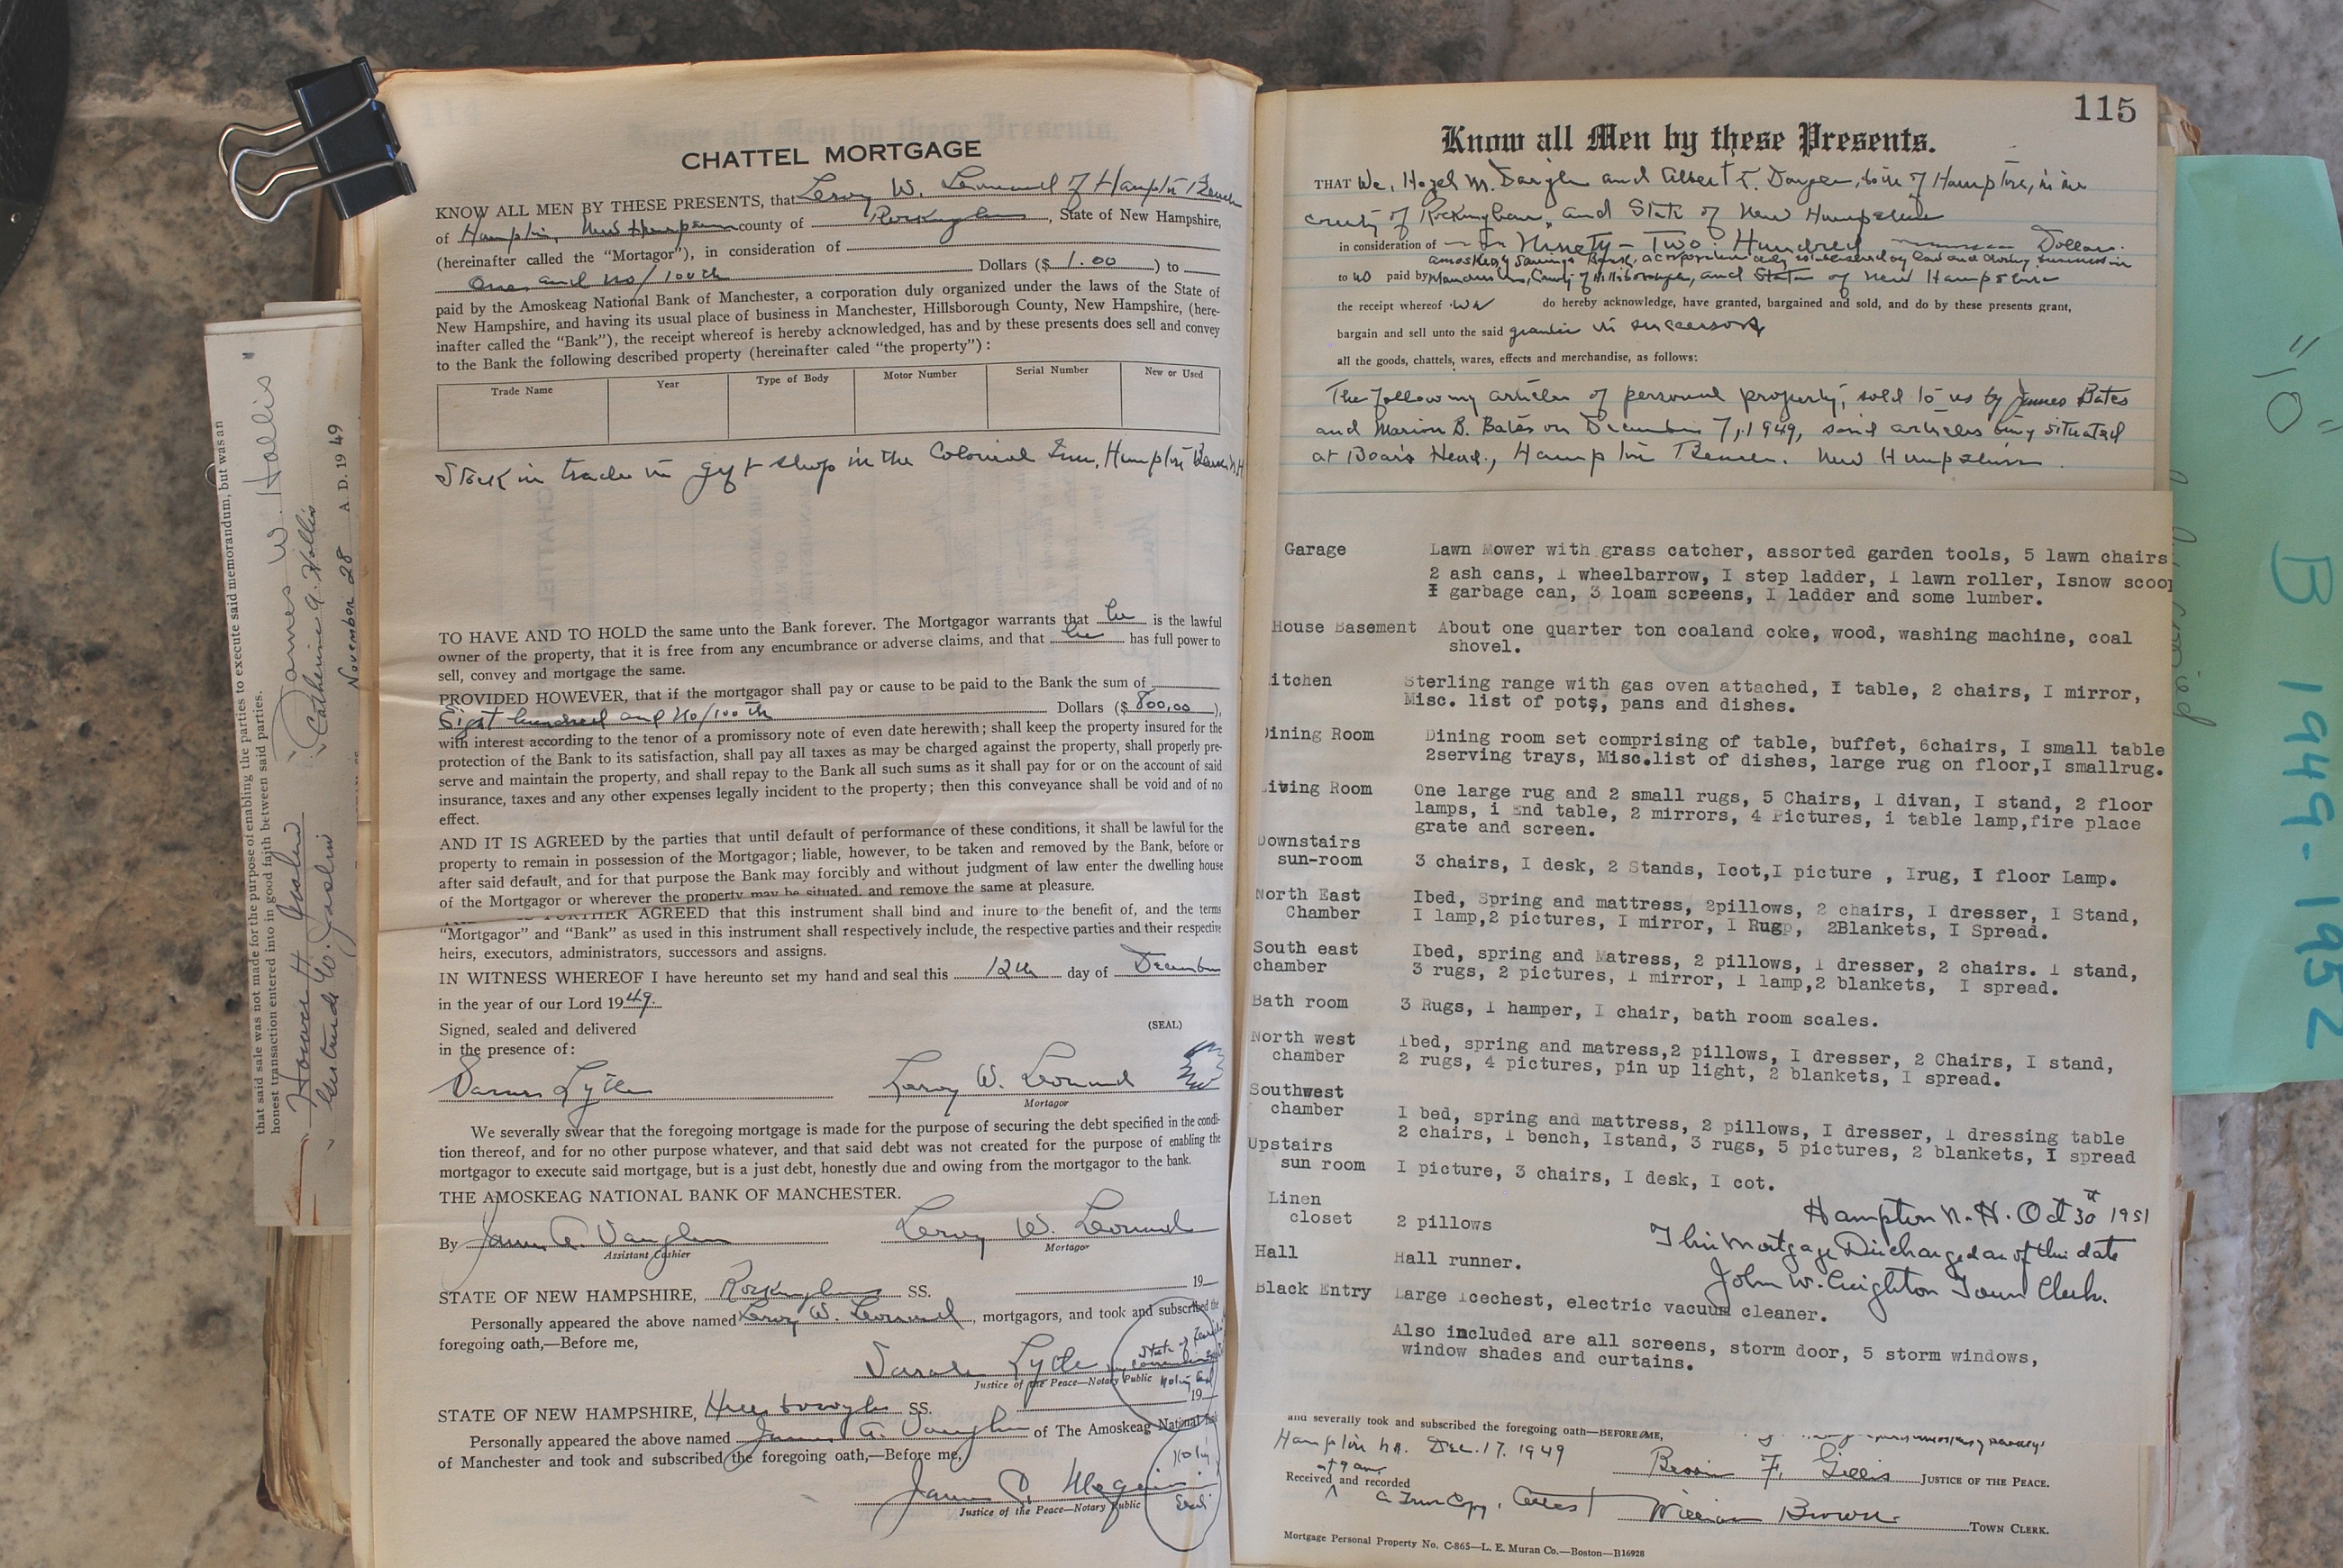 CHATTEL MORTGAGE
KNOW ALL MEN BY THESE PRESENTS, that Leroy W. Leonard of Hampton Beach
of Hampton, New Hampshire county of Rockingham, State of New Hampshire,
(hereinafter called the “Mortagor”), in consideration of
One and no/100th Dollars ($ 1.00 ) to
paid by the Amoskeag National Bank of Manchester, a corporation duly organized under the laws of the State of
New Hampshire, and having its usual place of business in Manchester, Hillsborough County, New Hampshire, (here-
inafter called the “Bank”), the receipt whereof is hereby acknowledged, has and by these presents does sell and convey
to the Bank the following described property (hereinafter caled “the property”):
Trade Name Year Type of Body Motor Number Serial Number New or Used
Stock in trade in gift shop in the Colonial Inn, Hampton Beach, N.H
TO HAVE AND TO HOLD the same unto the Bank forever. The Mortgagor warrants that he is the lawful
owner of the property, that it is free from any encumbrance or adverse claims, and that he has full power to
sell, convey and mortgage the same.
PROVIDED HOWEVER, that if the mortgagor shall pay or cause to be paid to the Bank the sum of
Eight hundred and no/100th Dollars ($ 800.00 ),
with interest according to the tenor of a promissory note of even date herewith; shall keep the property insured for the
protection of the Bank to its satisfaction, shall pay all taxes as may be charged against the property, shall properly pre-
serve and maintain the property, and shall repay to the Bank all such sums as it shall pay for or on the account of said
insurance, taxes and any other expenses legally incident to the property; then this conveyance shall be void and of no
effect.
AND IT IS AGREED by the parties that until default of performance of these conditions, it shall be lawful for the
property to remain in possession of the Mortgagor; liable, however, to be taken and removed by the Bank, before or
after said default, and for that purpose the Bank may forcibly and without judgment of law enter the dwelling house
of the Mortgagor or wherever the property may be situated, and remove the same at pleasure.
FURTHER AGREED that this instrument shall bind and inure to the benefit of, and the terms
“Mortgagor” and “Bank” as used in this instrument shall respectively include, the respective parties and their respective
heirs, executors, administrators, successors and assigns.
IN WITNESS WHEREOF I have hereunto set my hand and seal this 12th day of December
in the year of our Lord 1949.
Signed, sealed and delivered
in the presence of:
(SEAL)
Lytle Leroy W. Leonard
Mortagor
We severally swear that the foregoing mortgage is made for the purpose of securing the debt specified in the condi-
tion thereof, and for no other purpose whatever, and that said debt was not created for the purpose of enabling the
mortgagor to execute said mortgage, but is a just debt, honestly due and owing from the mortgagor to the bank.
THE AMOSKEAG NATIONAL BANK OF MANCHESTER.
By James A. Vaughn Leroy W. Leonard
Assistant Cashier Mortagor
STATE OF NEW HAMPSHIRE, Rockingham SS. 19
Personally appeared the above named Leroy W. Leonard, mortgagors, and took and subscribed the
foregoing oath,—Before me,
Sarah Lytle
Justice of the Peace—Notary Public
STATE OF NEW HAMPSHIRE, Hillsborough SS. 19
Personally appeared the above named James A. Vaughn of The Amoskeag National Bank
of Manchester and took and subscribed the foregoing oath,—Before me,
Justice of the Peace—Notary Public
Notary
Seal
that said sale was not made for the purpose of enabling the parties to execute said memorandum, but was an
honest transaction entered into in good faith between said parties.
Howard H. Joslin James W. Hollis
Gertrude W. Joslin Catherine A. Hollis
November 28 A. D. 19 49
115
Know all Men by these Presents.
THAT We, Hazel M. Daigle and Albert T. Daigle, both of Hampton, in the
county of Rockingham, and State of New Hampshire
in consideration of Ninety-Two Hundred Dollars
Amoskeag Savings Bank, a corporation duly established by law and doing business in
to us paid by Manchester, County of Hillsborough, and State of New Hampshire
the receipt whereof we do hereby acknowledge, have granted, bargained and sold, and do by these presents grant,
bargain and sell unto the said grantee its successors
all the goods, chattels, wares, effects and merchandise, as follows:
The following articles of personal property, sold to us by James Bates
and Marion B. Bates on December 7, 1949, said articles being situated
at Boar's Head, Hampton Beach. New Hampshire.
Garage Lawn Mower with grass catcher, assorted garden tools, 5 lawn chairs
2 ash cans, 1 wheelbarrow, I step ladder, 1 lawn roller, Isnow scoop
I garbage can, 3 loam screens, I ladder and some lumber.
House Basement About one quarter ton coaland coke, wood, washing machine, coal
shovel.
itchen Sterling range with gas oven attached, I table, 2 chairs, I mirror,
Misc. list of pots, pans and dishes.
Dining Room Dining room set comprising of table, buffet, 6chairs, I small table
2serving trays, Misc.list of dishes, large rug on floor,I smallrug.
Living Room One large rug and 2 small rugs, 5 Chairs, I divan, I stand, 2 floor
lamps, i End table, 2 mirrors, 4 Pictures, i table lamp,fire place
grate and screen.
Downstairs
sun-room 3 chairs, I desk, 2 Stands, Icot,I picture , Irug, I floor Lamp.
North East Ibed, Spring and mattress, 2pillows, 2 chairs, I dresser, I Stand,
Chamber I lamp,2 pictures, I mirror, 1 Rug , 2Blankets, I Spread.
South east Ibed, spring and Matress, 2 pillows, 1 dresser, 2 chairs. 1 stand,
chamber 3 rugs, 2 pictures, 1 mirror, 1 lamp,2 blankets, I spread.
Bath room 3 Rugs, 1 hamper, I chair, bath room scales.
North west 1bed, spring and matress,2 pillows, I dresser, 2 Chairs, I stand,
chamber 2 rugs, 4 pictures, pin up light, 2 blankets, I spread.
Southwest
chamber I bed, spring and mattress, 2 pillows, I dresser, 1 dressing table
2 chairs, 1 bench, Istand, 3 rugs, 5 pictures, 2 blankets, I spread
Upstairs
sun room I picture, 3 chairs, I desk, I cot.
Linen
closet 2 pillows
Hall Hall runner.
Black Entry Large icechest, electric vacuum cleaner.
Also included are all screens, storm door, 5 storm windows,
window shades and curtains.
Hampton N. H. Oct 30th 1951
This Mortgage Discharged as of this date
John W. Creighton Town Clerk.
and severally took and subscribed the foregoing oath—BEFORE ME,
Hampton NH. Dec. 17. 1949
at 9 am
Bessie F. Gillis JUSTICE OF THE PEACE.
Received and recorded
A True Copy, Attest William Brown TOWN CLERK.
Mortgage Personal Property No. C-865—L. E. Muran Co.—Boston—B16928
"10"
B 1949-1952